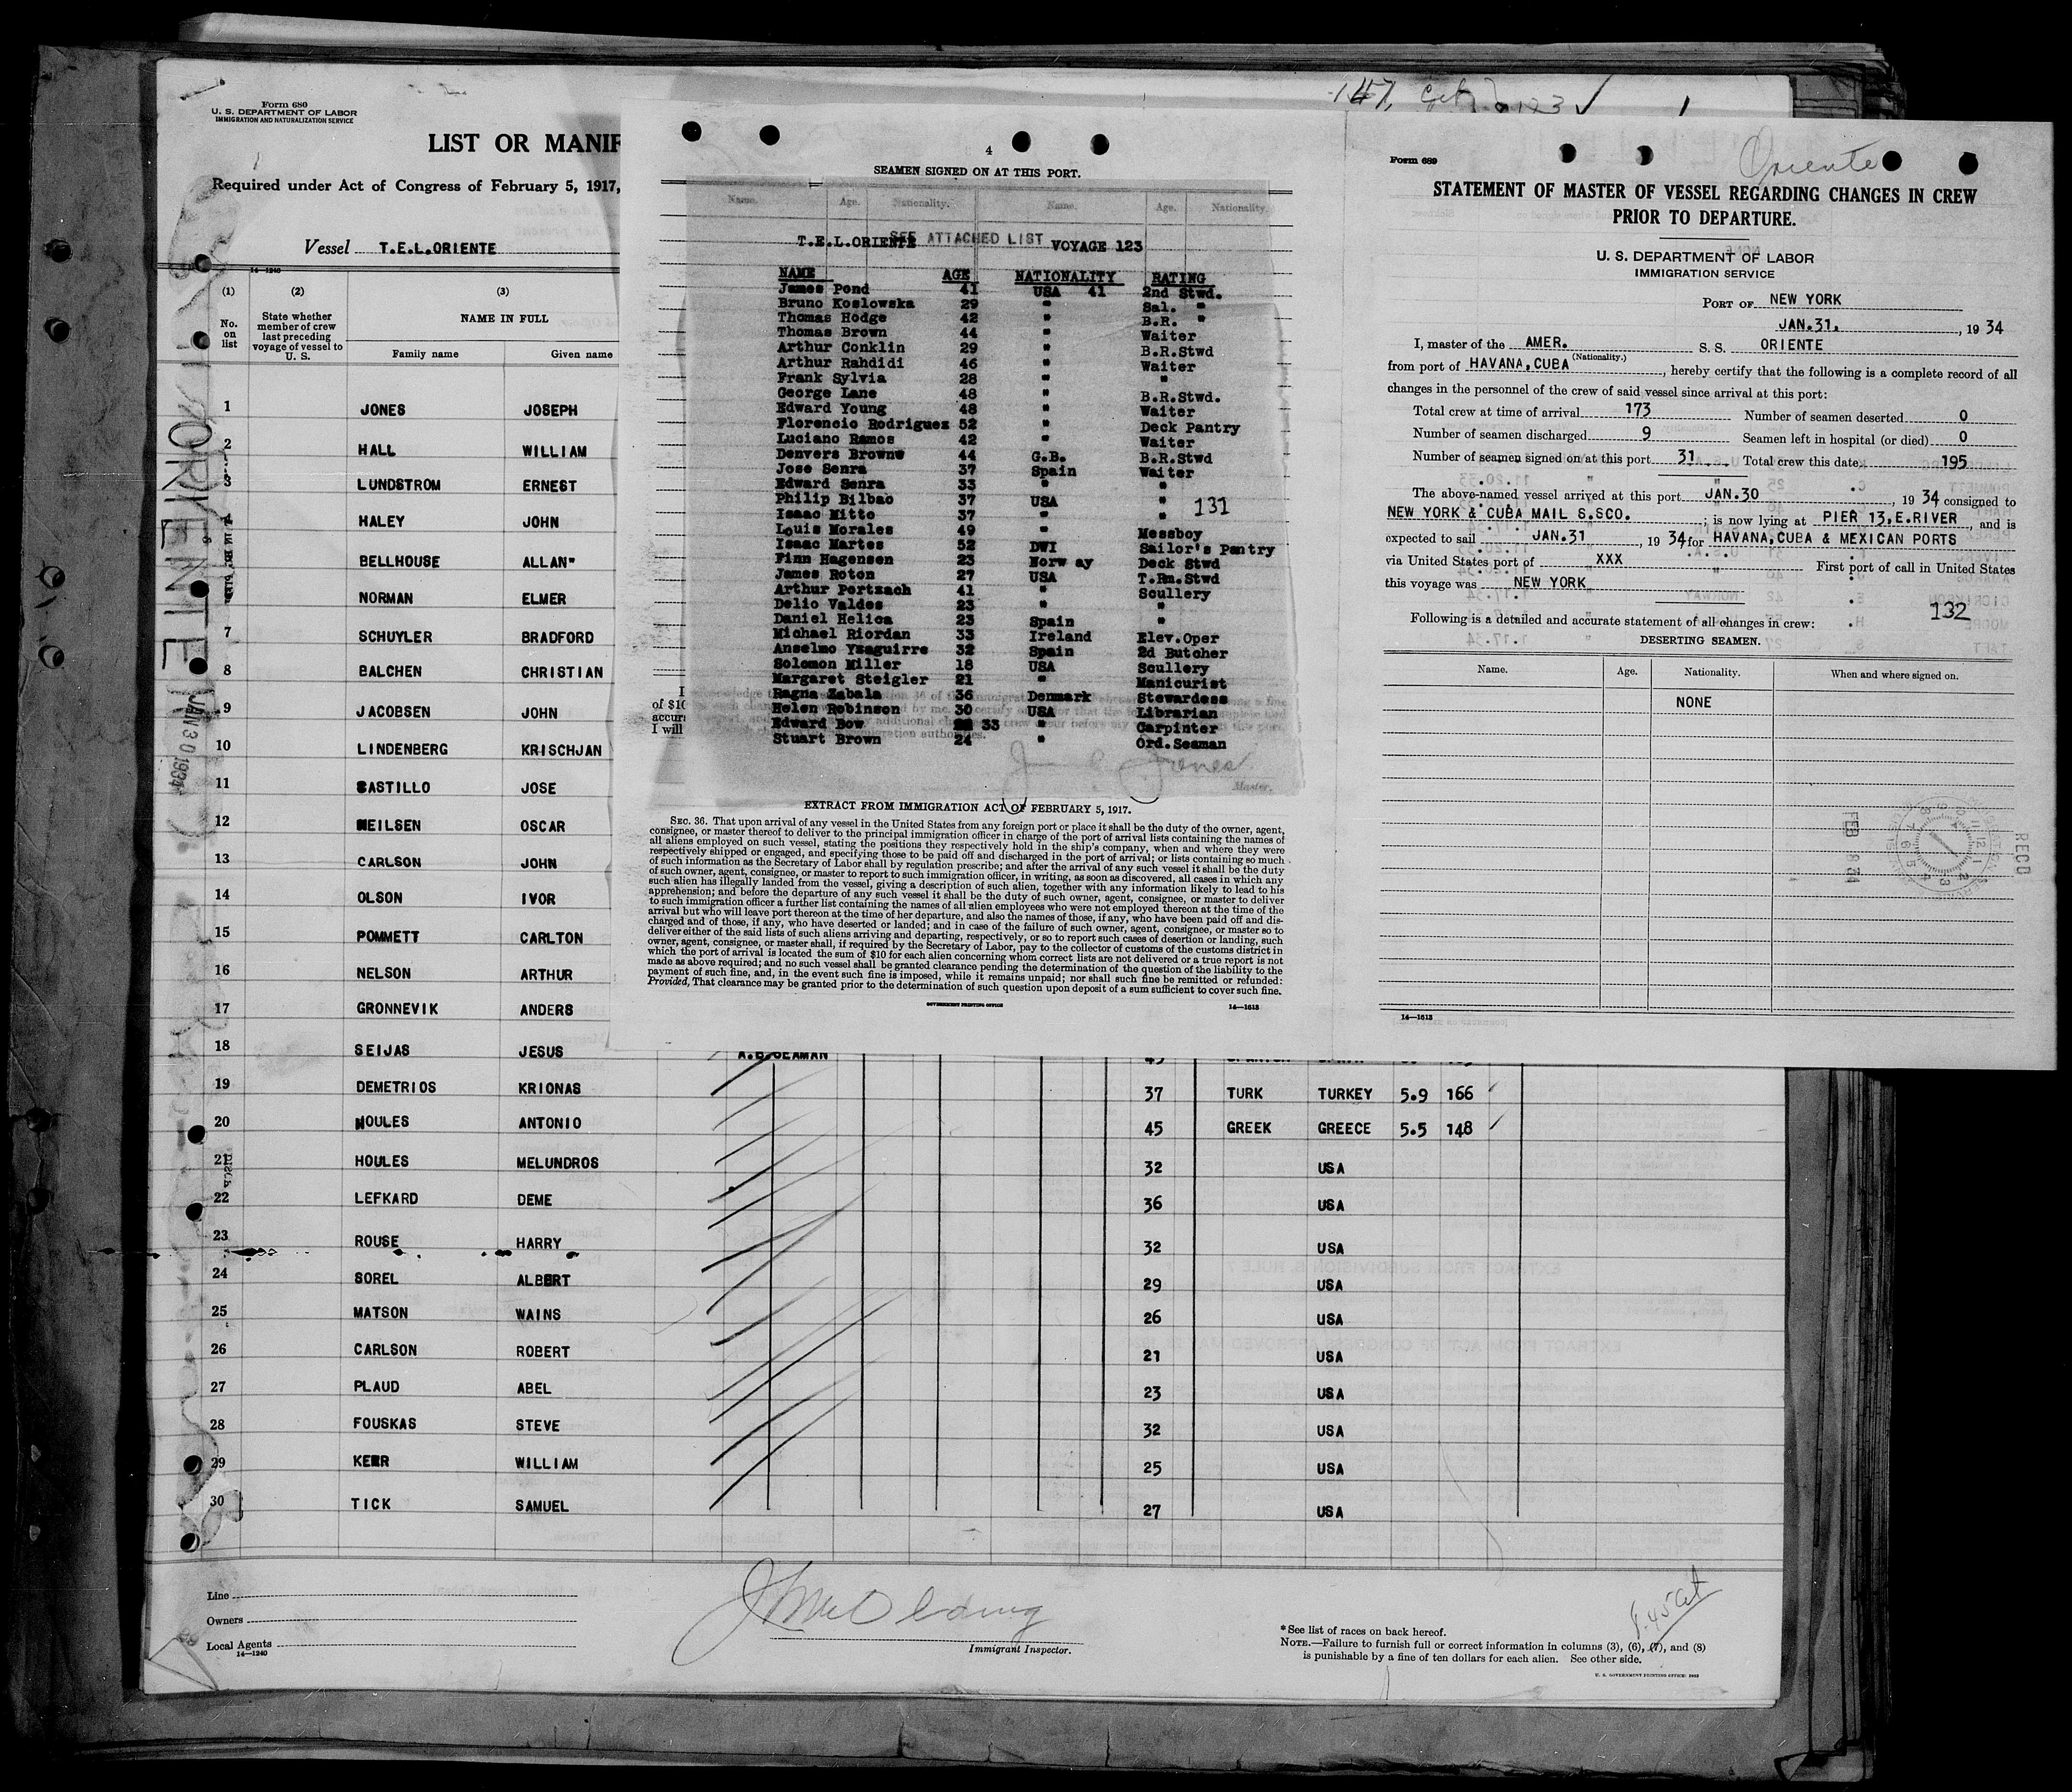 147,
123 ✓
1
Form 680
U. S. DEPARTMENT OF LABOR
IMMIGRATION AND NATURALIZATION SERVICE
LIST OR MANIF
Required under Act of Congress of February 5, 1917,
Vessel T.E.L.ORIENTE
14—1240
(1) (2) (3)
No. on list
State whether member of crew last preceding voyage of vessel to U. S.
NAME IN FULL
Family name Given name
1 JONES JOSEPH
2 HALL WILLIAM
3 LUNDSTROM ERNEST
4 HALEY JOHN
BELLHOUSE ALLAN"
NORMAN ELMER
7 SCHUYLER BRADFORD
8 BALCHEN CHRISTIAN
9 JACOBSEN JOHN
10 LINDENBERG KRISCHJAN
11 CASTILLO JOSE
12 NEILSEN OSCAR
13 CARLSON JOHN
14 OLSON IVOR
15 POMMETT CARLTON
16 NELSON ARTHUR
17 GRONNEVIK ANDERS
18 SEIJAS JESUS A.B.SEAMAN
19 DEMETRIOS KRIONAS 37 TURK TURKEY 5.9 166
20 HOULES ANTONIO 45 GREEK GREECE 5.5 148
21 HOULES MELUNDROS 32 USA
22 LEFKARD DEME 36 USA
23 ROUSE HARRY 32 USA
24 SOREL ALBERT 29 USA
25 MATSON WAINS 26 USA
26 CARLSON ROBERT 21 USA
27 PLAUD ABEL 23 USA
28 FOUSKAS STEVE 32 USA
29 KERR WILLIAM 25 USA
30 TICK SAMUEL 27 USA
Line
Owners
Local Agents
14—1240
Immigrant Inspector.
* See list of races on back hereof.
NOTE.—Failure to furnish full or correct information in columns (3), (6), (7), and (8)
is punishable by a fine of ten dollars for each alien. See other side.
U. S. GOVERNMENT PRINTING OFFICE: 1933
ORIENTE
JAN 30 1934
4
SEAMEN SIGNED ON AT THIS PORT.
Name. Age. Nationality. Name. Age. Nationality.
SEE ATTACHED LIST
T.E.L.ORIENTE VOYAGE 123
NAME AGE NATIONALITY RATING
James Pond 41 USA 41 2nd Stwd.
Bruno Koslowska 29 " Sal. "
Thomas Hodge 42 " B.R. "
Thomas Brown 44 " Waiter
Arthur Conklin 29 " B.R.Stwd
Arthur Rahdidi 46 " Waiter
Frank Sylvia 28 " "
George Lane 48 " B.R.Stwd.
Edward Young 48 " Waiter
Florencio Rodriguez 52 " Deck Pantry
Luciano Ramos 42 " Waiter
Denvers Browne 44 G.B. B.R.Stwd
Jose Senra 37 Spain Waiter
Edward Senra 33 " "
Philip Bilbao 37 USA "
Isaac Mitto 37 " "
131
Louis Morales 49 " Messboy
Isaac Martes 52 DWI Sailor's Pantry
Finn Hagensen 23 Norw ay Deck Stwd
James Roton 27 USA T.Rm.Stwd
Arthur Portzsch 41 " Scullery
Delio Valdes 23 " "
Daniel Helica 23 Spain "
Michael Riordan 33 Ireland Elev.Oper
Anselmo Yzaguirre 32 Spain 2d Butcher
Solomon Miller 18 USA Scullery
Margaret Steigler 21 " Manicurist
Ragna Zabala 36 Denmark Stewardess
Helen Robinson 30 USA Librarian
Edward Bow 33 " Carpinter
Stuart Brown 24 " Ord.Seaman
I
of $10
accur
I will
Jones
Master.
EXTRACT FROM IMMIGRATION ACT OF FEBRUARY 5, 1917.
SEC. 36. That upon arrival of any vessel in the United States from any foreign port or place it shall be the duty of the owner, agent,
consignee, or master thereof to deliver to the principal immigration officer in charge of the port of arrival lists containing the names of
all aliens employed on such vessel, stating the positions they respectively hold in the ship's company, when and where they were
respectively shipped or engaged, and specifying those to be paid off and discharged in the port of arrival; or lists containing so much
of such information as the Secretary of Labor shall by regulation prescribe; and after the arrival of any such vessel it shall be the duty
of such owner, agent, consignee, or master to report to such immigration officer, in writing, as soon as discovered, all cases in which any
such alien has illegally landed from the vessel, giving a description of such alien, together with any information likely to lead to his
apprehension; and before the departure of any such vessel it shall be the duty of such owner, agent, consignee, or master to deliver
to such immigration officer a further list containing the names of all alien employees who were not employed thereon at the time of the
arrival but who will leave port thereon at the time of her departure, and also the names of those, if any, who have been paid off and dis-
charged and of those, if any, who have deserted or landed; and in case of the failure of such owner, agent, consignee, or master so to
deliver either of the said lists of such aliens arriving and departing, respectively, or so to report such cases of desertion or landing, such
owner, agent, consignee, or master shall, if required by the Secretary of Labor, pay to the collector of customs of the customs district in
which the port of arrival is located the sum of $10 for each alien concerning whom correct lists are not delivered or a true report is not
made as above required; and no such vessel shall be granted clearance pending the determination of the question of the liability to the
payment of such fine, and, in the event such fine is imposed, while it remains unpaid; nor shall such fine be remitted or refunded:
Provided, That clearance may be granted prior to the determination of such question upon deposit of a sum sufficient to cover such fine.
GOVERNMENT PRINTING OFFICE 14—1613
Form 689
Oriente
STATEMENT OF MASTER OF VESSEL REGARDING CHANGES IN CREW
PRIOR TO DEPARTURE.
U. S. DEPARTMENT OF LABOR
IMMIGRATION SERVICE
PORT OF NEW YORK
JAN.31, , 19 34
I, master of the AMER. S. S. ORIENTE
(Nationality.)
from port of HAVANA,CUBA , hereby certify that the following is a complete record of all
changes in the personnel of the crew of said vessel since arrival at this port:
Total crew at time of arrival 173 Number of seamen deserted 0
Number of seamen discharged 9 Seamen left in hospital (or died) 0
Number of seamen signed on at this port 31 Total crew this date 195
The above-named vessel arrived at this port JAN.30 , 19 34 consigned to
NEW YORK & CUBA MAIL S.SCO. ; is now lying at PIER 13,E.RIVER , and is
expected to sail JAN.31 , 19 34 for HAVANA,CUBA & MEXICAN PORTS
via United States port of XXX First port of call in United States
this voyage was NEW YORK
132
Following is a detailed and accurate statement of all changes in crew:
DESERTING SEAMEN.
Name. Age. Nationality. When and where signed on.
NONE
FEB 8 34
REC'D
14—1613